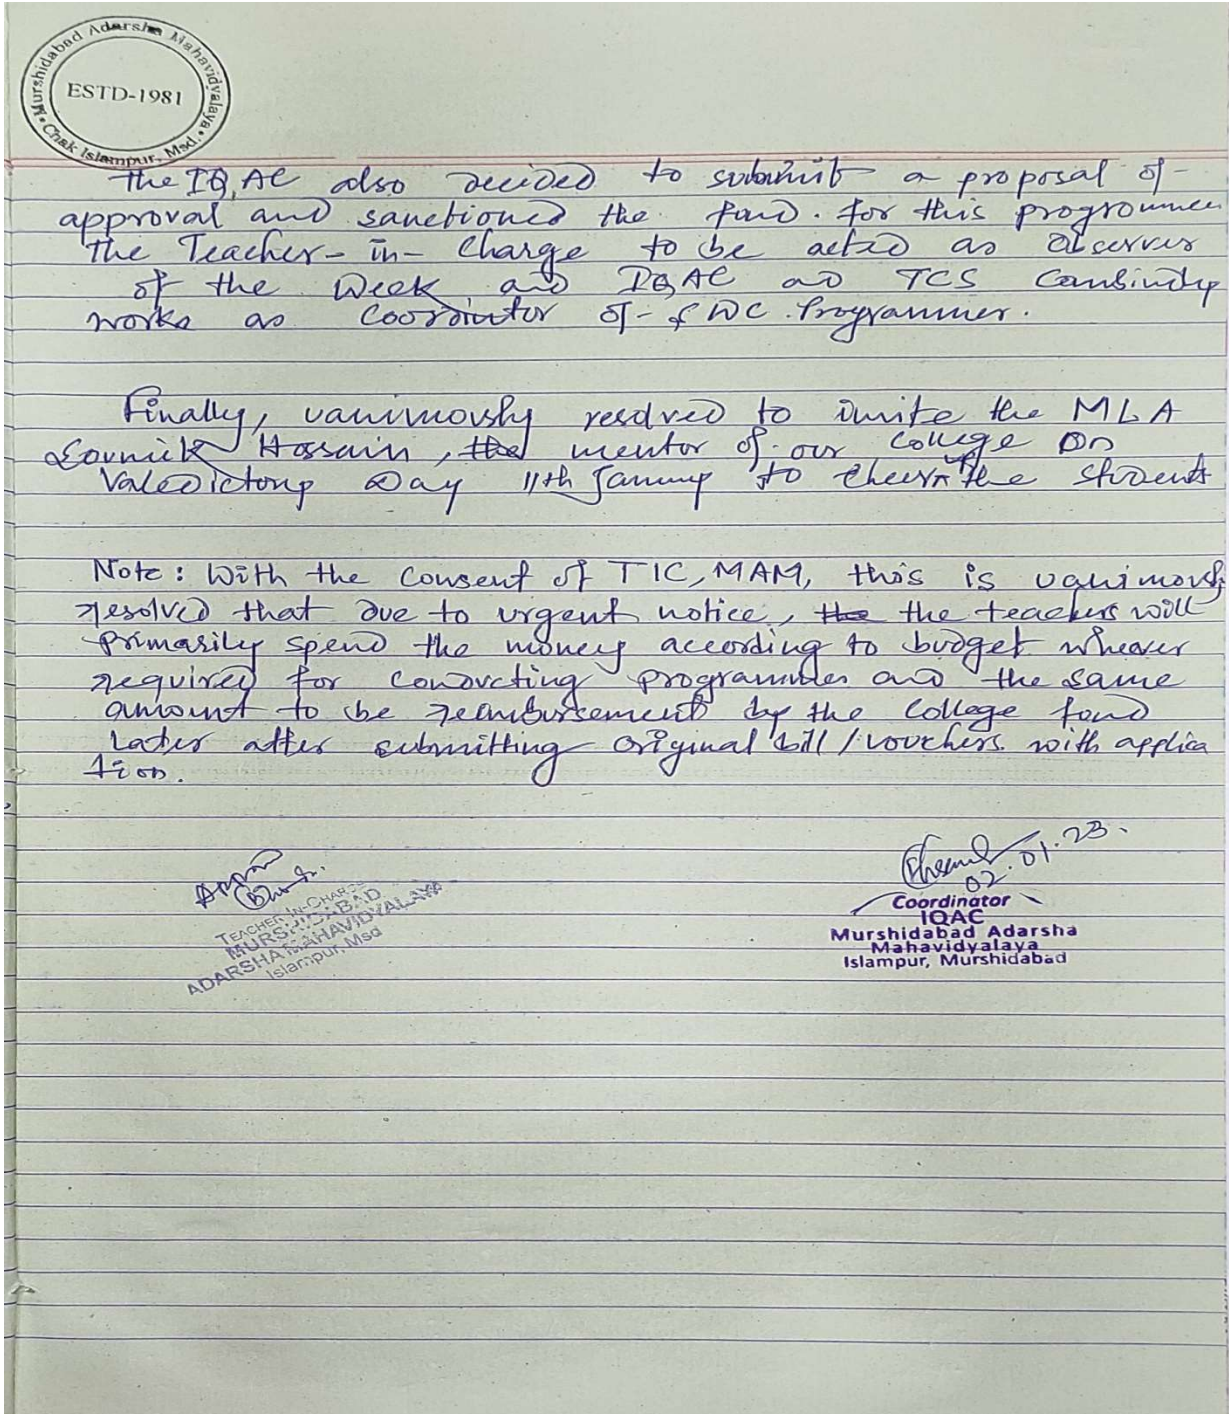 Murshidabad Adarsha Mahavidyalaya
ESTD-1981
Chak Islampur, Msd.
The IQAC also decided to submit a proposal of
approval and sanctioned the fund. for this programmes
the Teacher-in-Charge to be acted as Observer
of the Week and IQAC and TCS
works as of Programmer.
Finally, unanimously resolved to invite the MLA
Hossain, the mentor of our College on
Valedictory Day 11th to cheer the student
Note: With the consent of TIC, MAM, this is
resolved that due to urgent notice, the the teachers will
Primarily spend the money according to budget
required for conducting programmes and the same
amount to be by the College fund
Later after submitting original bill/vouchers with applica
tion.
TEACHER IN-CHARGE
MURSHIDABAD
ADARSHA MAHAVIDYALAYA
Islampur, Msd
02.01.23.
Coordinator
IQAC
Murshidabad Adarsha
Mahavidyalaya
Islampur, Murshidabad